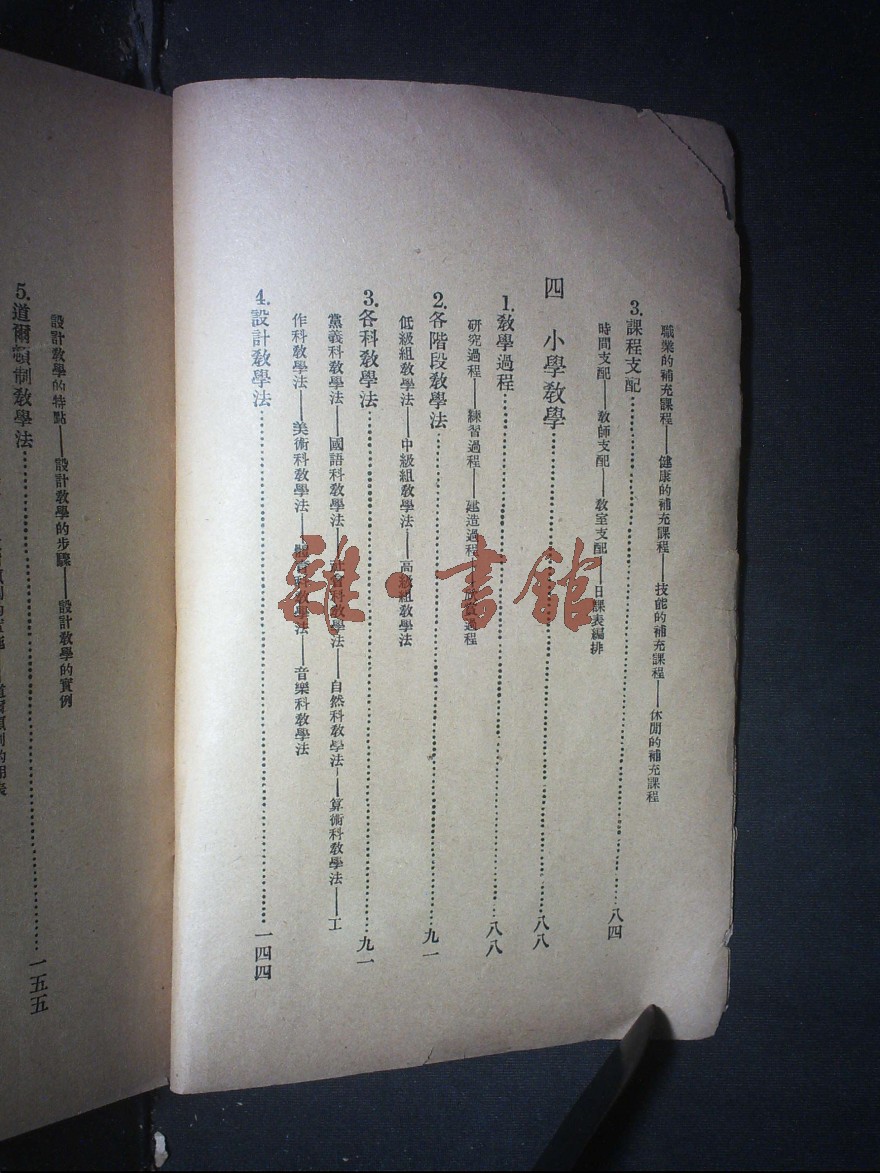 職業的補充課程——健康的補充課程——技能的補充課程——休閒的補充課程
3.課程支配……八四
時間支配——教師支配——教室支配——日課表編排
四 小學教學……八八
1.教學過程……八八
研究過程——練習過程——建造過程——欣賞過程
2.各階段教學法……九一
低級組教學法——中級組教學法——高級組教學法
3.各科教學法……九一
黨義科教學法——國語科教學法——社會科教學法——自然科教學法——算術科教學法——工
作科教學法——美術科教學法——體育科教學法——音樂科教學法
4.設計教學法……一四四
設計教學的特點——設計教學的步驟——設計教學的實例
5.道爾頓制教學法……一五五
雜·書館